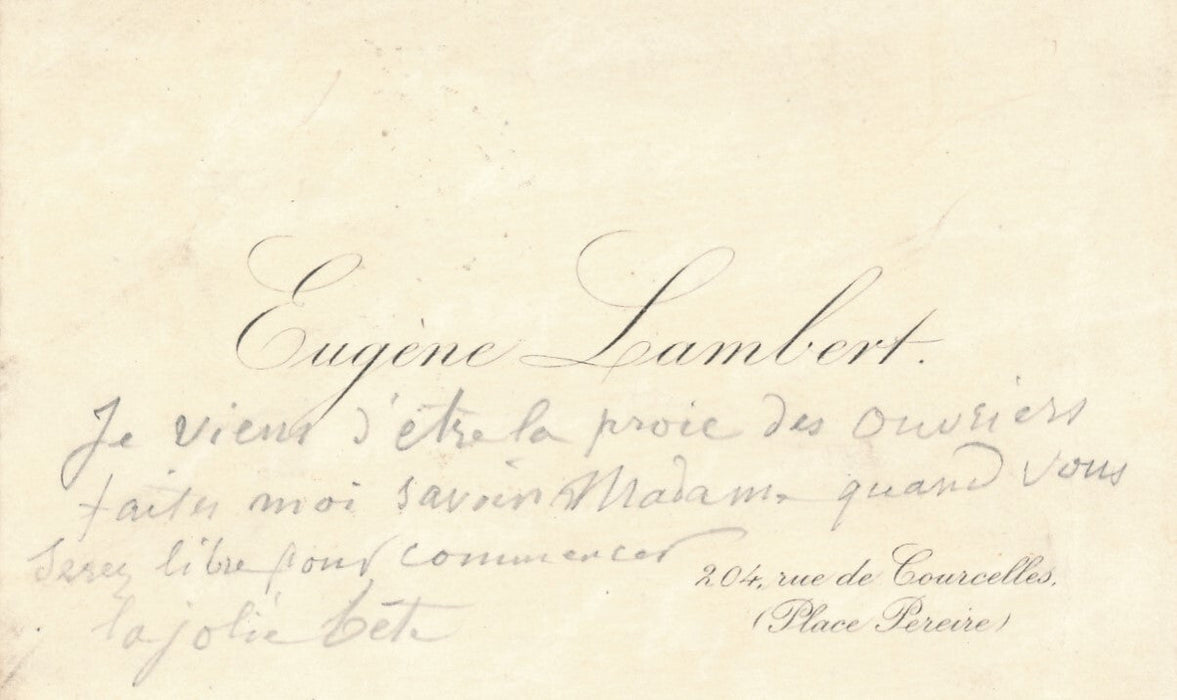 Eugène Lambert.
Je viens d'être la proie des ouvriers
faites moi savoir Madame quand vous
serez libre pour commencer
la jolie bête
204, rue de Courcelles.
(Place Pereire)